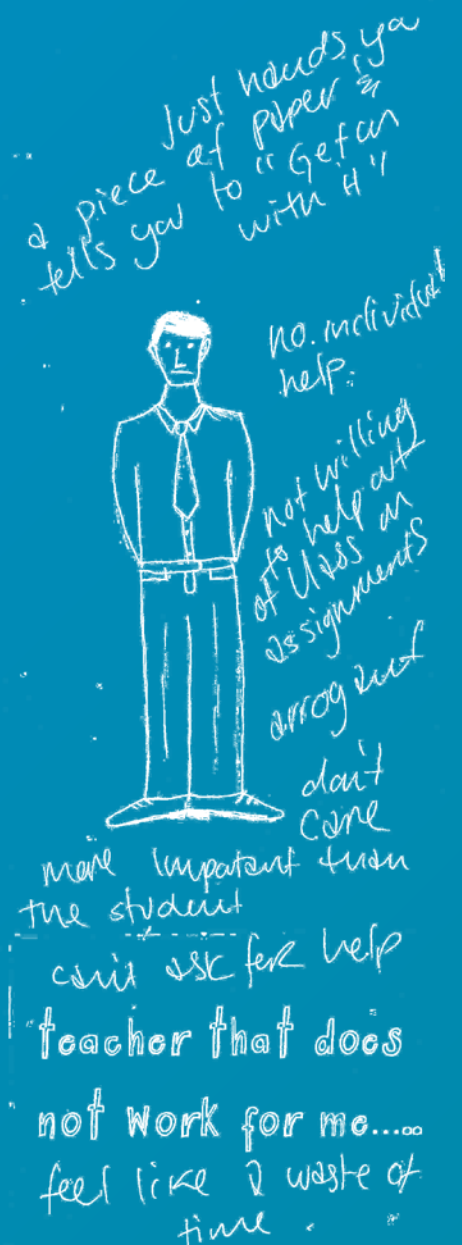 Just hands you
a piece of paper &
tells you to "Get on
with it"
no individual
help.
not willing
to help out
of class on
assignments
arrogant
don't
care
more important than
the student
can't ask for help
teacher that does
not work for me.....
feel like a waste of
time.